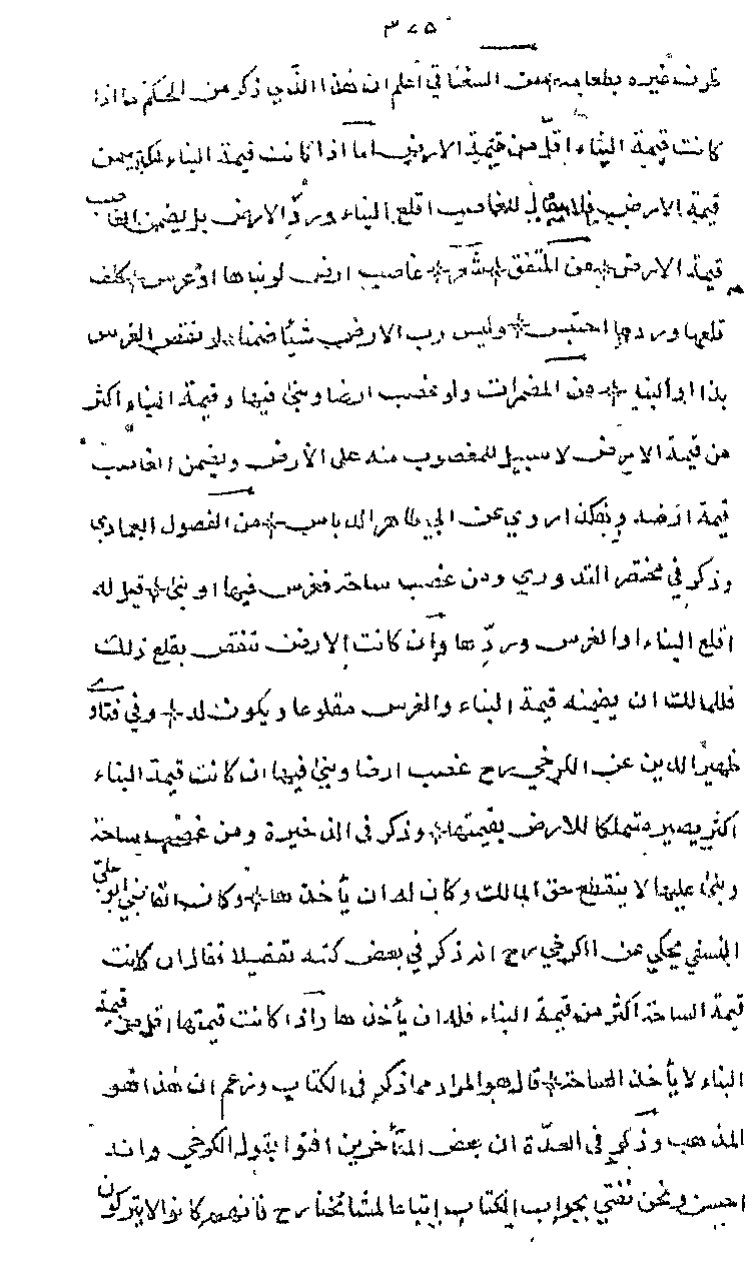 ٣٧٥
غيره بطعامه من السغناقي اعلم ان هذا الذي ذكر من الحكم ما اذا
كانت قيمة البناء اقل من قيمة الارض اما اذا كانت قيمة البناء اكثر من
قيمة الارض فلا يقال للغاصب اقلع البناء ورد الارض بل يضمن الغاصب
قيمة الارض من المتفق شعر غاصب ارض لو بناها او غرس كلف
قلعها وردها وليس رب الارض شيئا ضمنا لو نقص الغرس
بذا او البنا من المضمرات ولو غصب ارضا وبنى فيها وقيمة البناء اكثر
من قيمة الارض لا سبيل للمغصوب منه على الارض ويضمن الغاصب
قيمة ارضه وهكذا روي عن ابي طاهر الدباس من الفصول العمادي
وذكر في مختصر القدوري ومن غصب ساحة فغرس فيها او بنى قيل له
اقلع البناء او الغرس وردّها وان كانت الارض تنقص بقلع ذلك
فللمالك ان يضمنه قيمة البناء والغرس مقلوعا ويكون له وفي فتاوى
ظهير الدين عن الكرخي رح غصب ارضا وبنى فيها ان كانت قيمة البناء
اكثر يصير متملكا للارض بقيمتها وذكر في الذخيرة ومن غصب ساحة
وبنى عليها لا ينقطع حق المالك وكان له ان يأخذها وكان القاضي ابو علي
النسفي يحكي عن الكرخي رح انه ذكر في بعض كتبه تفصيلا فقال ان كانت
قيمة الساحة اكثر من قيمة البناء فله ان يأخذها واذا كانت قيمتها اقل من قيمة
البناء لا يأخذ الساحة قال هو المراد مما ذكر في الكتاب وزعم ان هذا هو
المذهب وذكر في العدّة ان بعض المتأخرين افتوا بقول الكرخي وانه
احسن ونحن نفتي بجواب الكتاب اتباعا لمشائخنا رح فانهم كانوا لا يتركون